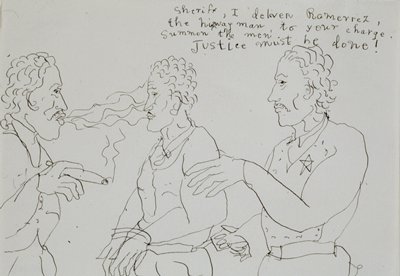 Sherif, I deliver Ramerrez,
the higway man to your charge.
Summon the men.
Justice must be done!